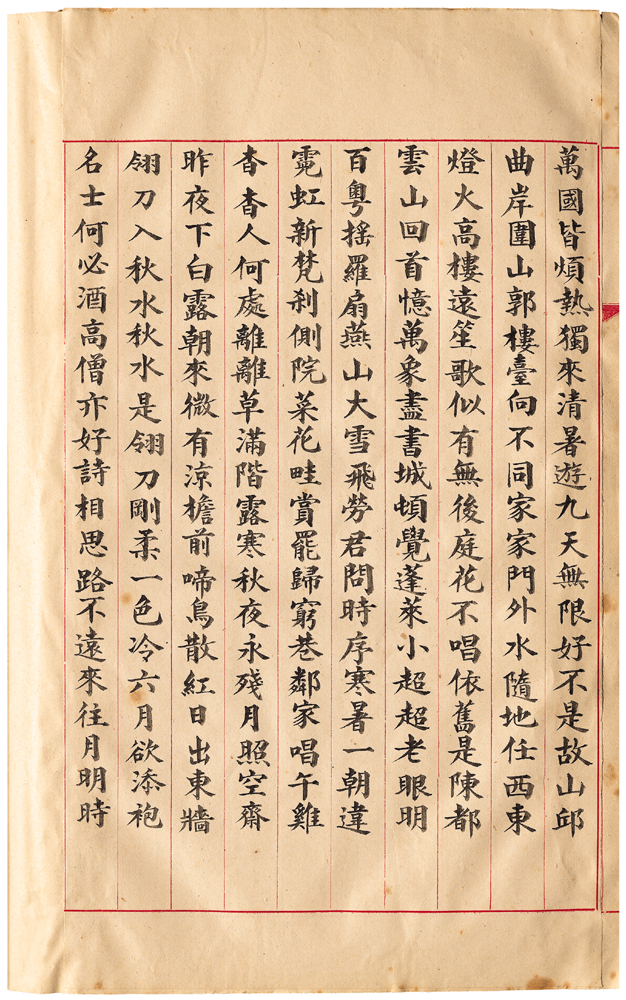 萬國皆煩熱獨來清暑遊九天無限好不是故山邱
曲岸圍山郭樓臺向不同家家門外水隨地任西東
燈火高樓遠笙歌似有無後庭花不唱依舊是陳都
雲山回首憶萬象盡書城頓覺蓬萊小超超老眼明
百粵搖羅扇燕山大雪飛勞君問時序寒暑一朝違
霓虹新梵刹側院菜花畦賞罷歸窮巷鄰家唱午雞
杳杳人何處離離草滿階露寒秋夜永殘月照空齋
昨夜下白露朝來微有涼檐前啼鳥散紅日出東牆
翎刀入秋水秋水是翎刀剛柔一色冷六月欲添袍
名士何必酒高僧亦好詩相思路不遠來往月明時